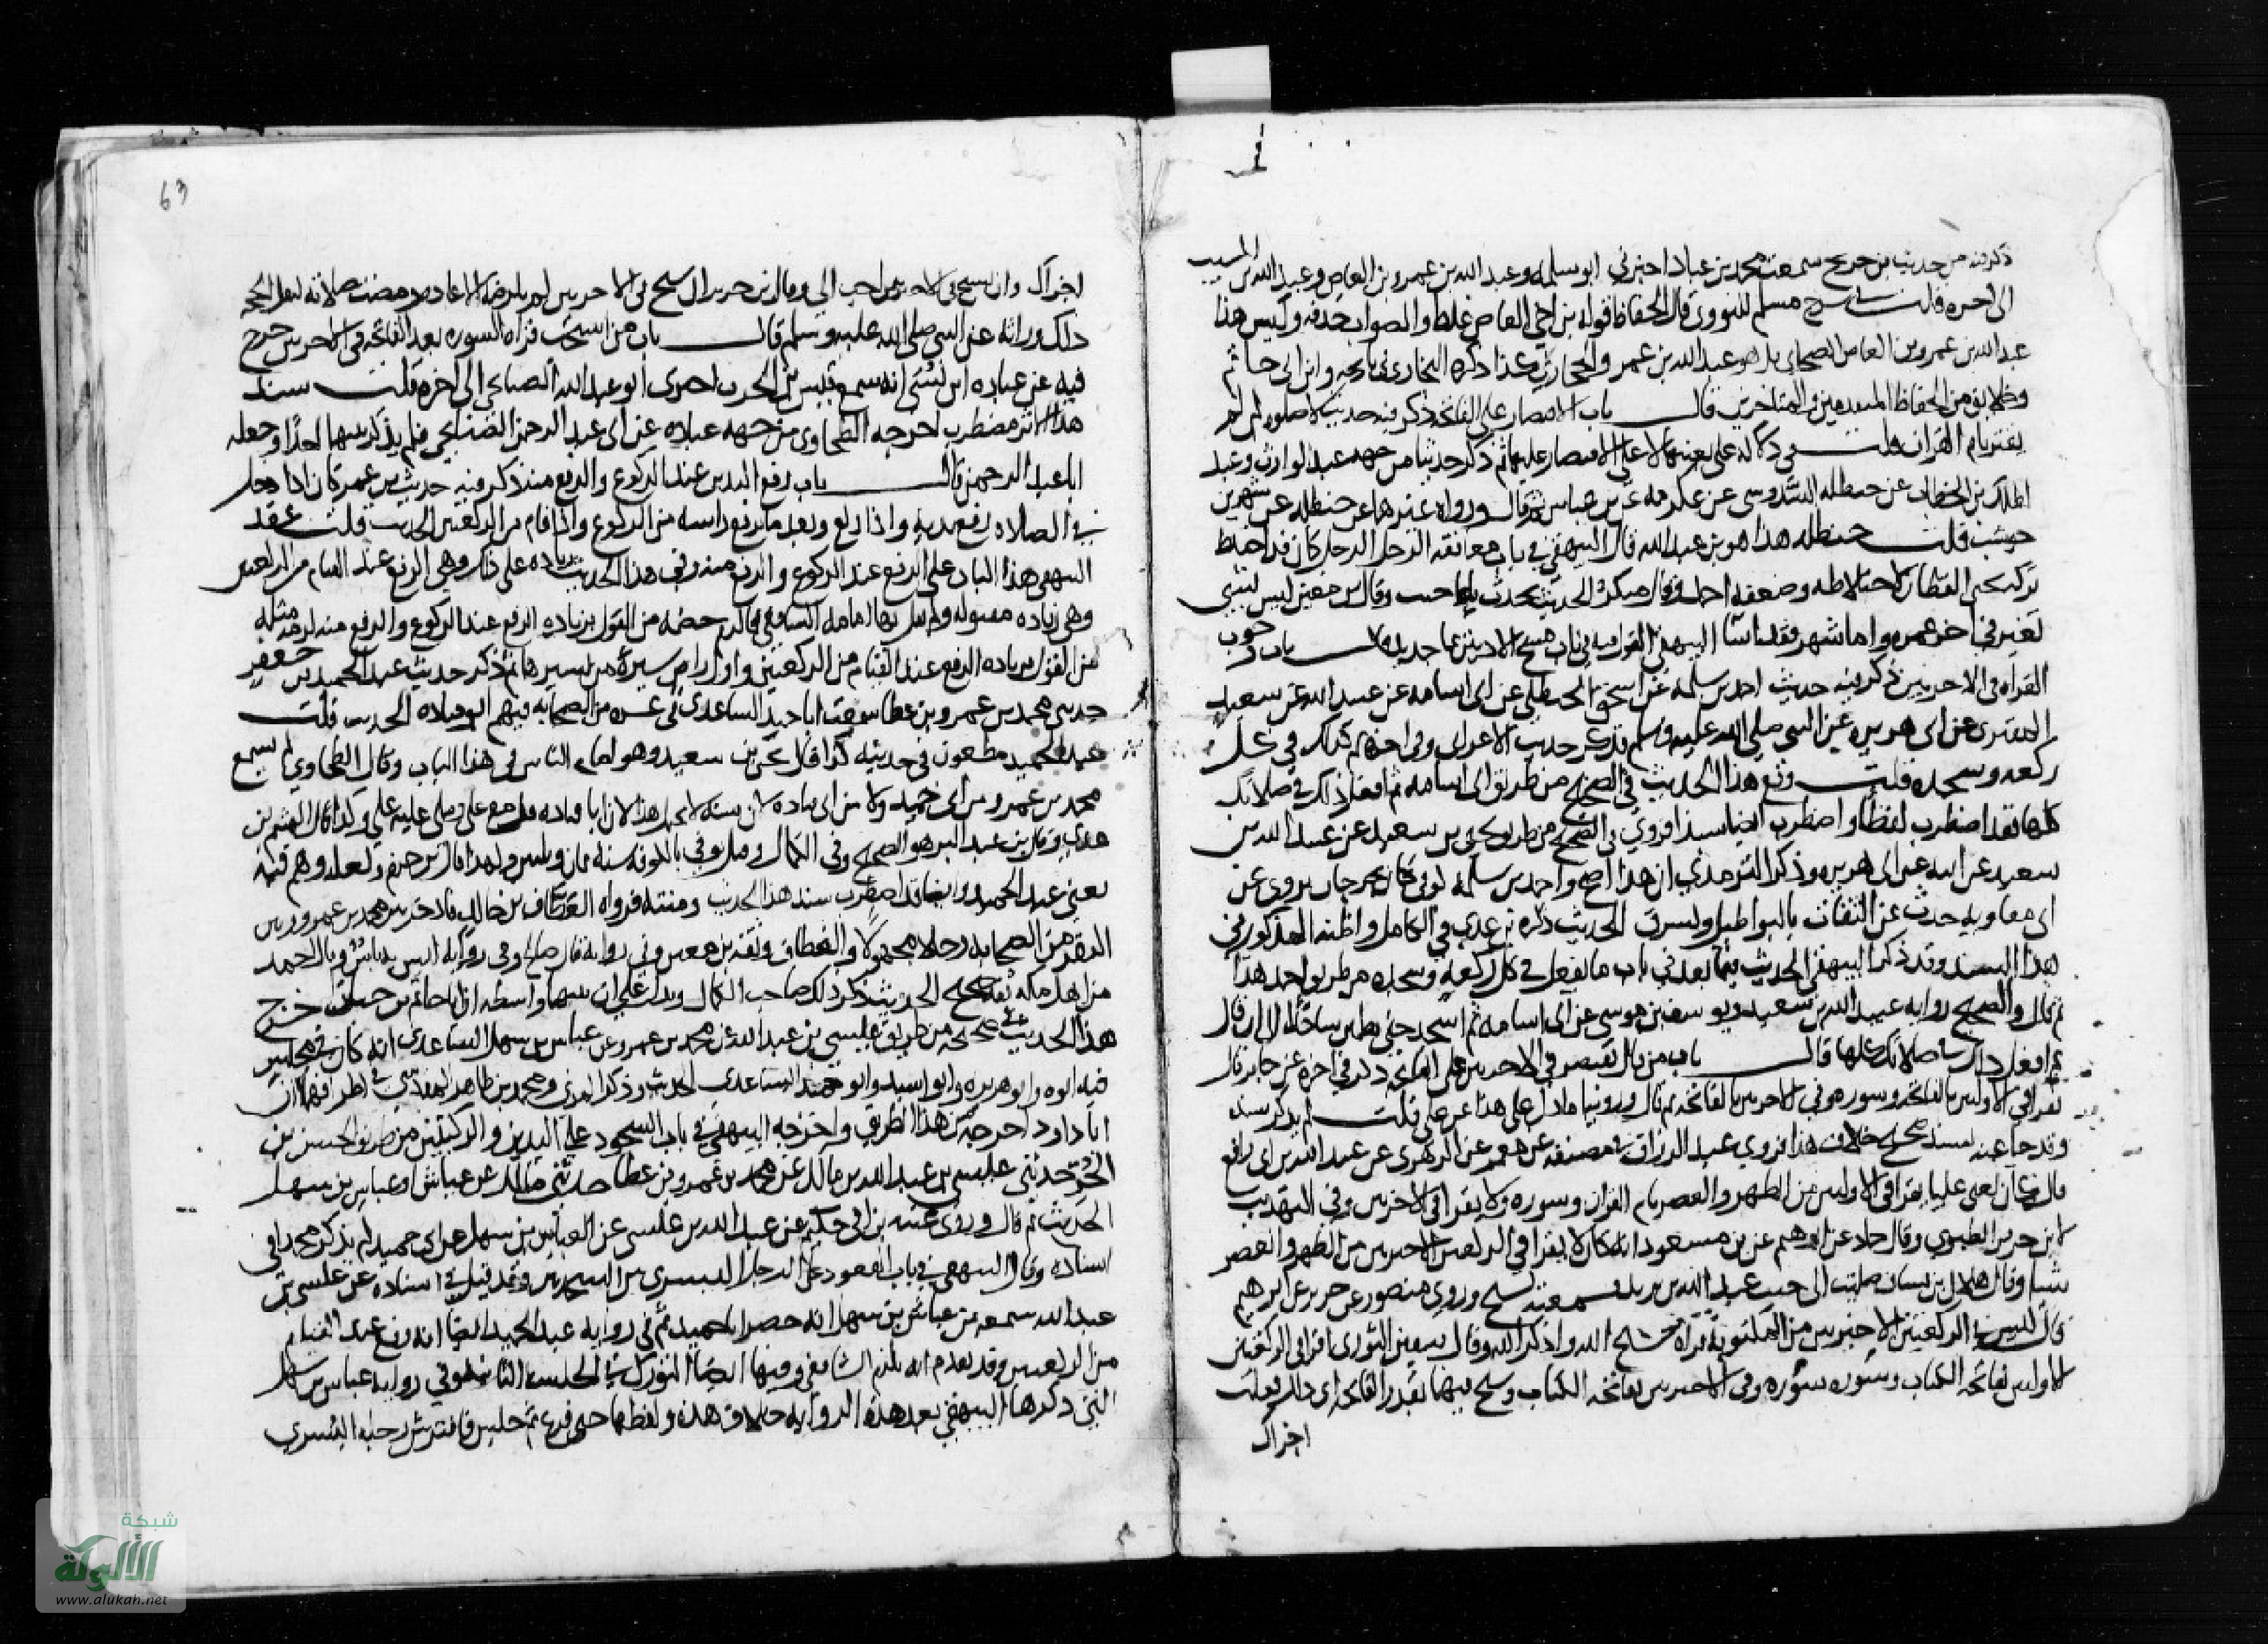 ذكر فيه من حديث بن جريج سمعت محمد بن عباد اخبرني ابو سلمة وعبد الله بن عمرو بن العاص وعبد الله بن المسيب
الى اخره قلت في شرح مسلم للنووي قال الحفاظ قوله بن العاص غلط والصواب حذفه وليس هذا
عبد الله بن عمرو بن العاص الصحابي بل هو عبد الله بن عمرو الحجازي كذا ذكره البخاري في تاريخه وابن ابي حاتم
وخلائق من الحفاظ المتقدمين والمتاخرين قال باب الاقتصار على الفاتحة ذكر فيه حديث لا صلوة لمن لم
يقترء بام القران قلت في دلالته على تعينها لا على الاقتصار عليها ثم ذكر حديثا من جهة عبد الوارث وعبد
الملك بن الخطاب عن حنظلة السدوسي عن عكرمة عن بن عباس ثم قال ورواه غيرهما عن حنظلة عن شهر بن
حوشب قلت حنظلة هذا هو بن عبد الله قال البيهقي في باب معانقة الرجل الرجل كان قد اختلط
تركه يحيى القطان لاختلاطه وضعفه احمد وقال منكر الحديث يحدث باعاجيب وقال بن معين ليس بشي
تغير في اخر عمره واما شهر فقد اسا البيهقي القول فيه في باب مسح الاذنين بما جديد قال باب وجوب
القراه في الاخريين ذكر فيه حديث احمد بن سلمة عن اسحق الحنظلي عن ابي اسامة عن عبيد الله عن سعيد
المقبري عن ابي هريره عن النبي صلى الله عليه وسلم فذكر حديث الاعرابي وفي اخره ثم كذلك في كل
ركعه وسجده قلت وقع هذا الحديث في الصحيح من طريق ابي اسامة ثم افعل ذلك في صلاتك
كلها فقد اضطرب لفظا واضطرب ايضا سندا فروي في الصحيح من طريق يحيى بن سعيد عن عبيد الله بن
سعيد عن ابيه عن ابي هريره وذكر الترمذي ان هذا اصح واحمد بن سلمة كوفي كان بجرجان يروي عن
ابي معاوية حدث عن الثقات بالبواطيل ويسرق الحديث ذكره بن عدي في الكامل واظنه المذكور في
هذا السند وقد ذكر البيهقي الحديث فيما بعد في باب ما يفعل في كل ركعة وسجده من طريق احمد هذا
ثم قال والصحيح رواية عبيد الله بن سعيد ويوسف بن موسى عن ابي اسامة ثم اسجد حتى تطمئن ساجدا الا ان قال
ثم افعل ذلك في صلاتك كلها قال باب من قال يقتصر في الاخريين على الفاتحة ذكر في اخره عن جابر قال
يقرا في الاوليين بالفاتحة وسوره وفي الاخريين بالفاتحة ثم قال وروينا ما دل على هذا عن علي قلت لم يذكر سنده
وقد جا عنه بسند صحيح خلاف هذا فروي عبد الرزاق في مصنفه عن معمر عن الزهري عن عبيد الله بن ابي رافع
قال كان يعني عليا يقرا في الاوليين من الظهر والعصر بام القران وسوره ولا يقرا في الاخريين وفي التهذيب
لابن جرير الطبري وقال حماد عن ابرهيم عن بن مسعود انه كان لا يقرا في الركعتين الاخريين من الظهر والعصر
شيا وقال هلال بن يساف صليت الى جنب عبد الله بن يزيد فسمعته يسبح وروى منصور عن جرير عن ابرهيم
قال ليس في الركعتين الاخريين من المكتوبة قراة سبح الله واذكر الله وقال سفين الثوري اقرا في الركعتين
الاوليين بفاتحة الكتاب وسورة سورة وفي الاخريين بفاتحة الكتاب وسبح فيهما بقدر الفاتحة اي ذلك فعلت
اجزاك
63
اجزاك وان سبح في الاخريين احب الي وقال بن جرير ان سبح في الاخريين لم يلزمه الاعادة ومضت صلاته لنقل الحجة
ذلك وراثة عن النبي صلى الله عليه وسلم قال باب من استحب قراة السورة بعد الفاتحة في الاخريين خرج
فيه عن عباده بن نسي انه سمع قيس بن الحرث اخبرني ابو عبد الله الصنابحي الى اخره قلت سند
هذا الاثر مضطرب اخرجه الطحاوي من جهة عبادة عن ابي عبد الرحمن الصنابحي فلم يذكر بينهما احدا وجعله
ابا عبد الرحمن قال باب رفع اليدين عند الركوع والرفع منه ذكر فيه حديث بن عمر كان اذا دخل
في الصلاة رفع يديه واذا ركع وبعد ما يرفع راسه من الركوع واذا قام من الركعتين الحديث قلت عقد
البيهقي هذا الباب على الرفع عند الركوع والرفع منه وفي هذا الحديث زياده على ذلك وهي الرفع عند القيام من الركعتين
وهي زيادة مقبولة ولم يقل بها امامه الشافعي فالذي خصمه من القول بزيادة الرفع عند الركوع والرفع منه لزمه مثله
من القول بزيادة الرفع عند القيام من الركعتين واول راض سيرة من يسيرها ثم ذكر حديث عبد الحميد بن جعفر
حدثني محمد بن عمرو بن عطا سمعت ابا حميد الساعدي في عشره من الصحابة فيهم ابو قتادة الحديث قلت
عبد الحميد مطعون في حديثه كذا قال يحيى بن سعيد وهو امام الناس في هذا الباب وقال الطحاوي لم يسمع
محمد بن عمرو من ابي حميد ولا من ابي قتادة لان سنه لا يحتمل هذا لان ابا قتادة قتل مع علي وصلى عليه علي وكذا قال الهيثم بن
عدي وقال بن عبد البر هو الصحيح وفي الكمال وقيل توفي بالكوفة سنه ثمان وثلاثين ولهذا قال بن حزم ولعله وهم فيه
يعني عبد الحميد وايضا فقد اضطرب سند هذا الحديث ومتنه فرواه العطاف بن خالد فادخل بين محمد بن عمرو وبين
النفر من الصحابة رجلا مجهولا والعطاف وثقه بن معين وفي رواية قال صالح وفي رواية ليس به باس وقال احمد
من اهل مكة ثقة صحيح الحديث ذكر ذلك صاحب الكمال ويدل على ان بينهما واسطه ان ابا حاتم بن حبان اخرج
هذا الحديث في صحيحه من طريق عيسى بن عبد الله عن محمد بن عمرو عن عباس بن سهل الساعدي انه كان في مجلس
فيه ابوه وابو هريره وابو اسيد وابو حميد الساعدي الحديث وذكر المزي ومحمد بن طاهر المقدسي في اطرافهما ان
ابا داود اخرجه من هذا الطريق واخرجه البيهقي في باب السجود على اليدين والركبتين من طريق الحسن بن
الحر حدثني عيسى بن عبد الله بن مالك عن محمد بن عمرو بن عطا حدثني مالك عن عياش او عباس بن سهل
الحديث ثم قال وروى عتبة بن ابي حكيم عن عبد الله بن عيسى عن العباس بن سهل عن ابي حميد لم يذكر محمدا في
اسناده وقال البيهقي في باب القعود على الرجل اليسرى بين السجدتين وقد قيل في اسناده عن عيسى بن
عبد الله سمعه من عباس بن سهل انه حضر ابا حميد ثم في رواية عبد الحميد ايضا انه رفع عند القيام
من الركعتين وقد تقدم انه يلزم الشافعي وفيها ايضا التورك في الجلسة الثانية وفي رواية عباس بن سهل
التي ذكرها البيهقي بعد هذه الرواية خلاف هذه ولفظها حتى فرغ ثم جلس فافترش رجله اليسرى
شبكة
الألوكة
www.alukah.net